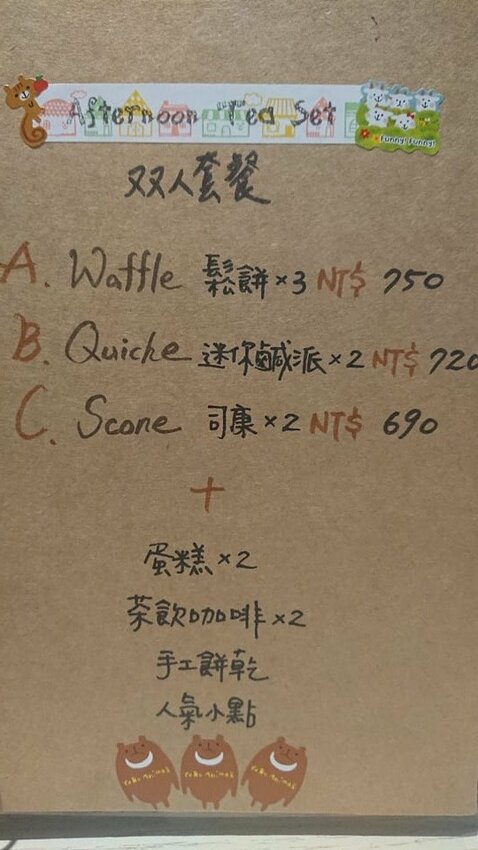 Afternoon Tea Set
Funny! Funny!
双人套餐
A. Waffle 鬆餅×3 NT$ 750
B. Quiche 迷你鹹派×2 NT$ 720
C. Scone 司康×2 NT$ 690
+
蛋糕×2
茶飲咖啡×2
手工餅乾
人氣小點